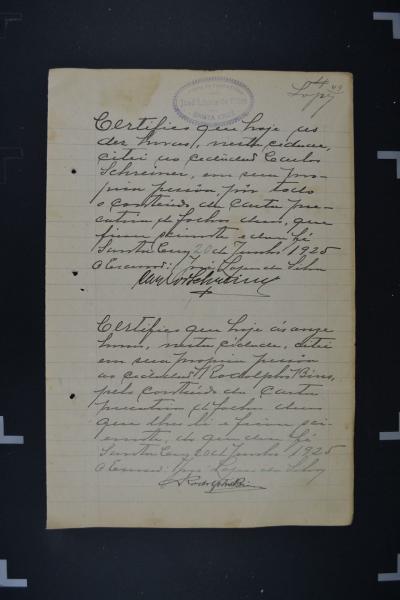 José Lopes da Silva
SANTA CRUZ
Lopes
Certifico que hoje as
dez horas, nesta cidade,
citei ao cidadão Carlos
Schreiner, em sua pro-
pria pessôa, por todo
o conteúdo da carta pre-
catoria de folhas duas, que
ficou sciente e dou fé
Santa Cruz 20 de Junho 1925
O Escrivão: José Lopes da Silva
Carlos Schreiner
Certifico que hoje ás onze
horas, nesta cidade, citei
em sua propria pessôa
ao cidadão Rodolpho
pelo conteúdo da carta
precatoria de folhas duas
que lhes li e ficou sci-
ente, do que dou fé
Santa Cruz 20 de Junho 1925
O Escrivão: José Lopes da Silva